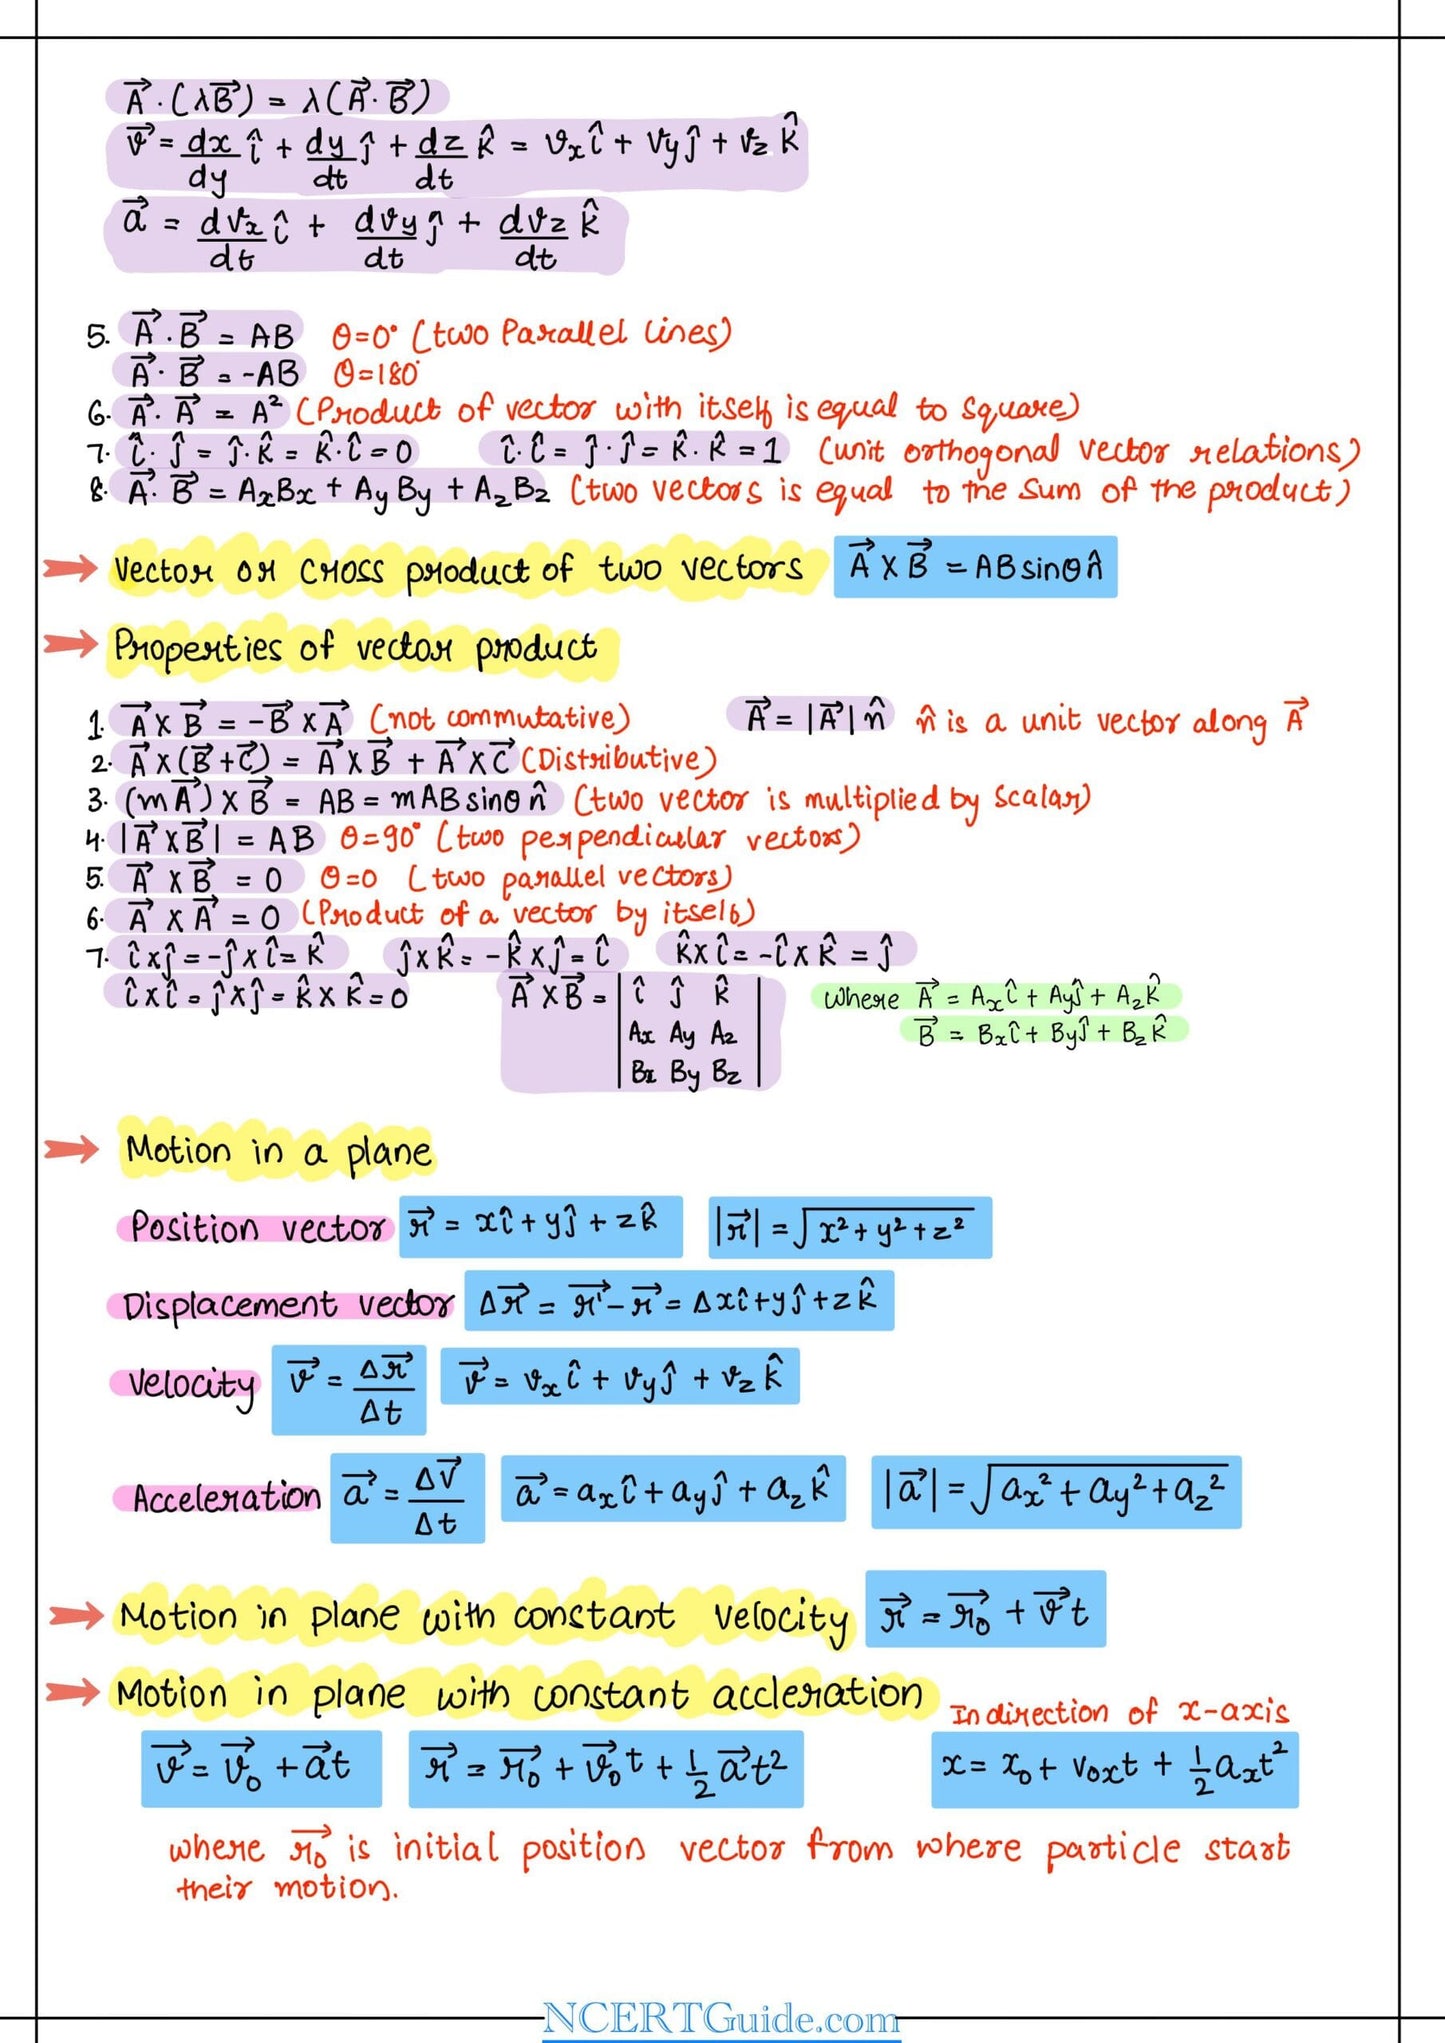 A⃗ · (λB⃗) = λ(A⃗ · B⃗)
v⃗ = dx/dy î + dy/dt ĵ + dz/dt k̂ = vₓî + vyĵ + vz k̂
a⃗ = dvx/dt î + dvy/dt ĵ + dvz/dt k̂
5. A⃗ · B⃗ = AB θ=0° (two Parallel lines)
A⃗ · B⃗ = -AB θ=180°
6. A⃗ · A⃗ = A² (Product of vector with itself is equal to square)
7. î · ĵ = ĵ · k̂ = k̂ · î = 0 î · î = ĵ · ĵ = k̂ · k̂ = 1 (unit orthogonal vector relations)
8. A⃗ · B⃗ = AxBx + AyBy + AzBz (two vectors is equal to the sum of the product)
Vector or cross product of two vectors A⃗ × B⃗ = AB sinθ n̂
Properties of vector product
1. A⃗ × B⃗ = -B⃗ × A⃗ (not commutative) A⃗ = |A⃗| n̂ n̂ is a unit vector along A⃗
2. A⃗ × (B⃗ + C⃗) = A⃗ × B⃗ + A⃗ × C⃗ (Distributive)
3. (mA⃗) × B⃗ = AB = mAB sinθ n̂ (two vector is multiplied by scalar)
4. |A⃗ × B⃗| = AB θ=90° (two perpendicular vectors)
5. A⃗ × B⃗ = 0 θ=0 (two parallel vectors)
6. A⃗ × A⃗ = 0 (Product of a vector by itself)
7. î × ĵ = -ĵ × î = k̂ ĵ × k̂ = -k̂ × ĵ = î k̂ × î = -î × k̂ = ĵ
î × î = ĵ × ĵ = k̂ × k̂ = 0 A⃗ × B⃗ = | î ĵ k̂ | where A⃗ = Axî + Ayĵ + Azk̂
| Ax Ay Az | B⃗ = Bxî + Byĵ + Bzk̂
| Bx By Bz |
Motion in a plane
Position vector r⃗ = xî + yĵ + zk̂ |r⃗| = √x² + y² + z²
Displacement vector Δr⃗ = r⃗' - r⃗ = Δxî + yĵ + zk̂
Velocity v⃗ = Δr⃗/Δt v⃗ = vxî + vyĵ + vzk̂
Acceleration a⃗ = Δv⃗/Δt a⃗ = axî + ayĵ + azk̂ |a⃗| = √ax² + ay² + az²
Motion in plane with constant velocity r⃗ = r⃗₀ + v⃗t
Motion in plane with constant accleration
In direction of x-axis
v⃗ = v⃗₀ + a⃗t r⃗ = r⃗₀ + v⃗₀t + 1/2 a⃗t² x = x₀ + v₀xt + 1/2 axt²
where r⃗₀ is initial position vector from where particle start
their motion.
NCERTGuide.com